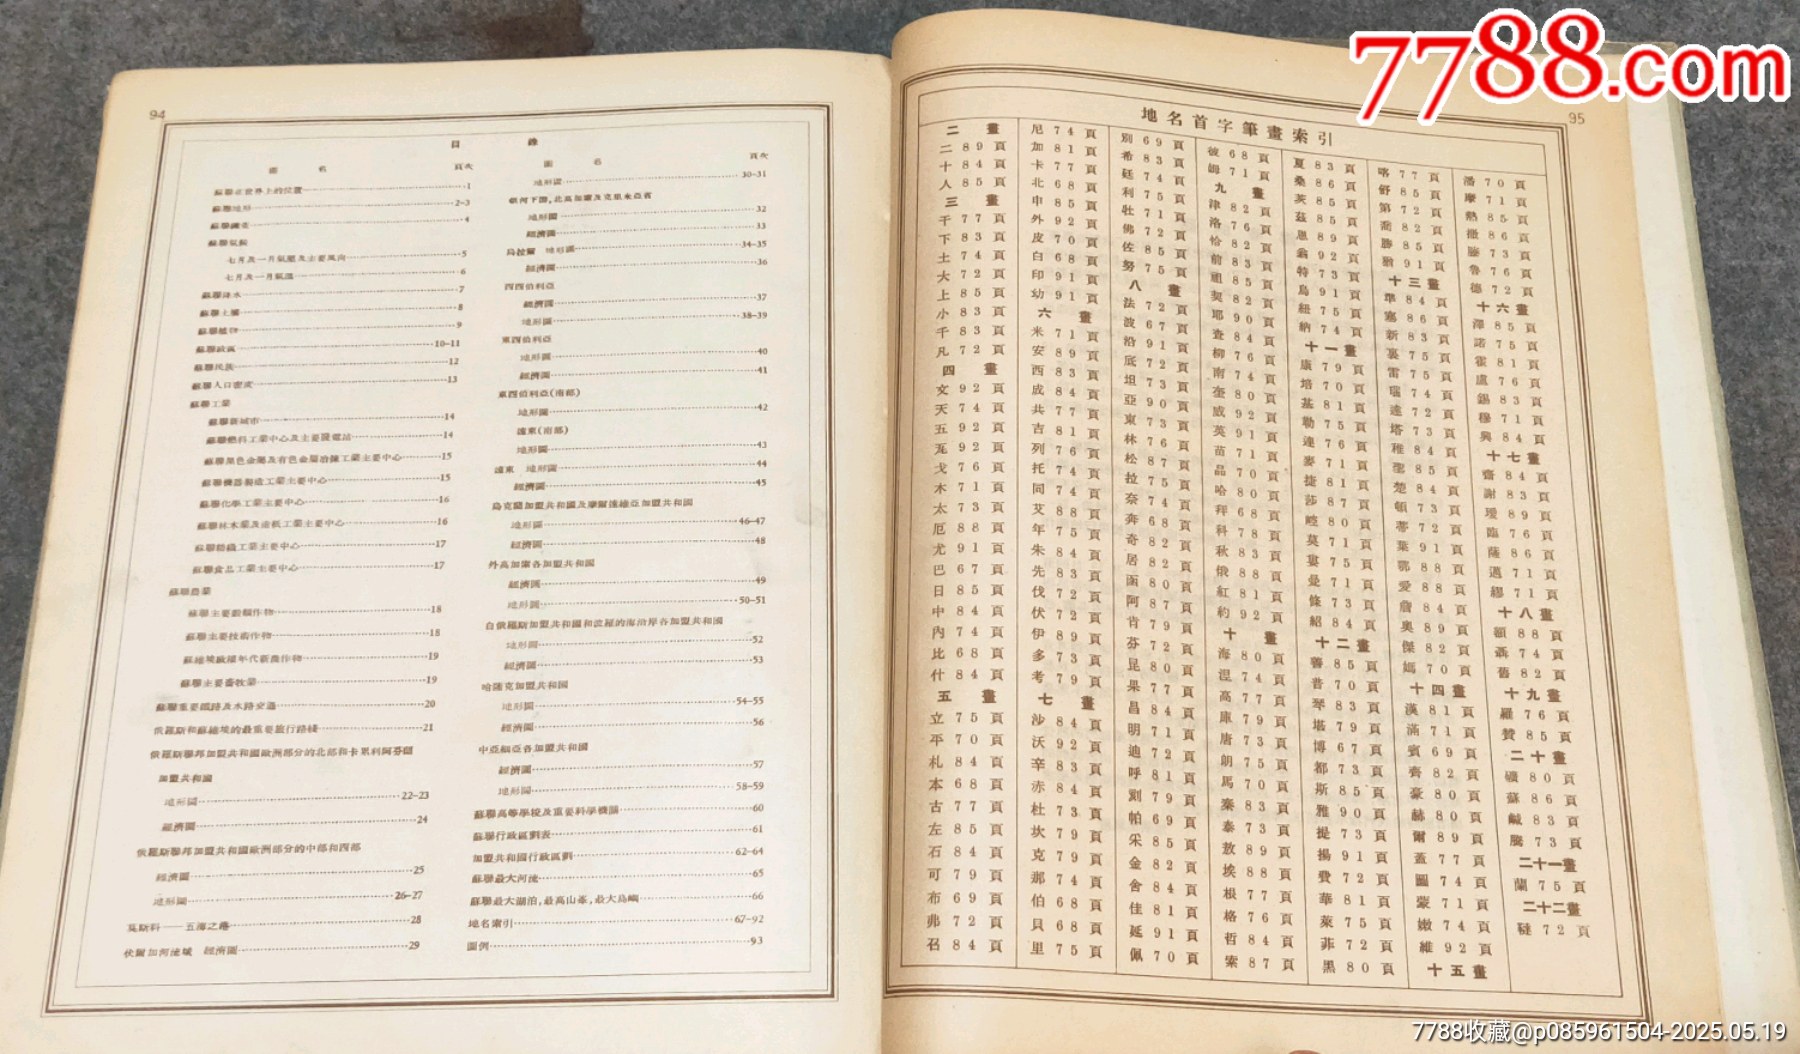 7788.com
94
目 錄
圖 名 頁次
蘇聯在世界上的位置 1
蘇聯地形 2-3
蘇聯礦產 4
蘇聯氣候
七月及一月氣壓及主要風向 5
七月及一月氣溫 6
蘇聯降水 7
蘇聯土壤 8
蘇聯植物 9
蘇聯政區 10-11
蘇聯民族 12
蘇聯人口密度 13
蘇聯工業
蘇聯新城市 14
蘇聯燃料工業中心及主要發電站 14
蘇聯黑色金屬及有色金屬冶煉工業主要中心 15
蘇聯機器製造工業主要中心 15
蘇聯化學工業主要中心 16
蘇聯林木業及造紙工業主要中心 16
蘇聯紡織工業主要中心 17
蘇聯食品工業主要中心 17
蘇聯農業
蘇聯主要穀類作物 18
蘇聯主要技術作物 18
蘇維埃政權年代新農作物 19
蘇聯主要畜牧業 19
蘇聯重要鐵路及水路交通 20
俄羅斯和蘇維埃的最重要旅行路綫 21
俄羅斯聯邦加盟共和國歐洲部分的北部和卡累利阿芬蘭
加盟共和國
地形圖 22-23
經濟圖 24
俄羅斯聯邦加盟共和國歐洲部分的中部和西部
經濟圖 25
地形圖 26-27
莫斯科——五海之港 28
伏爾加河流域 經濟圖 29
圖 名 頁次
地形圖 30-31
頓河下游,北高加索及克里米亞省
地形圖 32
經濟圖 33
烏拉爾 地形圖 34-35
經濟圖 36
西西伯利亞
經濟圖 37
地形圖 38-39
東西伯利亞
地形圖 40
經濟圖 41
東西伯利亞(南部)
地形圖 42
遠東(南部)
地形圖 43
遠東 地形圖 44
經濟圖 45
烏克蘭加盟共和國及摩爾達維亞加盟共和國
地形圖 46-47
經濟圖 48
外高加索各加盟共和國
經濟圖 49
地形圖 50-51
白俄羅斯加盟共和國和波羅的海沿岸各加盟共和國
地形圖 52
經濟圖 53
哈薩克加盟共和國
地形圖 54-55
經濟圖 56
中亞細亞各加盟共和國
經濟圖 57
地形圖 58-59
蘇聯高等學校及重要科學機關 60
蘇聯行政區劃表 61
加盟共和國行政區劃 62-64
蘇聯最大河流 65
蘇聯最大湖泊,最高山峯,最大島嶼 66
地名索引 67-92
圖例 93
95
地名首字筆畫索引
二 畫
二 89 頁
十 84 頁
人 85 頁
三 畫
干 77 頁
下 83 頁
土 74 頁
大 72 頁
上 85 頁
小 83 頁
千 83 頁
凡 72 頁
四 畫
文 92 頁
天 74 頁
五 92 頁
瓦 92 頁
戈 76 頁
木 71 頁
太 73 頁
厄 88 頁
尤 91 頁
巴 67 頁
日 85 頁
中 84 頁
內 74 頁
比 68 頁
什 84 頁
五 畫
立 75 頁
平 70 頁
札 84 頁
本 68 頁
古 77 頁
左 85 頁
石 84 頁
可 79 頁
布 69 頁
弗 72 頁
召 84 頁
尼 74 頁
加 81 頁
卡 77 頁
北 68 頁
申 85 頁
外 92 頁
皮 70 頁
白 68 頁
印 91 頁
幼 91 頁
六 畫
米 71 頁
安 89 頁
西 83 頁
成 84 頁
共 77 頁
吉 81 頁
列 76 頁
托 74 頁
同 74 頁
艾 88 頁
年 75 頁
朱 84 頁
先 83 頁
伐 72 頁
伏 72 頁
伊 89 頁
多 73 頁
考 79 頁
七 畫
沙 84 頁
沃 92 頁
辛 83 頁
赤 84 頁
杜 73 頁
坎 79 頁
克 79 頁
那 74 頁
伯 68 頁
貝 68 頁
里 75 頁
別 69 頁
希 83 頁
廷 74 頁
利 75 頁
牡 71 頁
佛 72 頁
佐 85 頁
努 75 頁
八 畫
法 72 頁
波 67 頁
沿 91 頁
底 72 頁
坦 73 頁
亞 90 頁
東 73 頁
林 76 頁
松 87 頁
拉 75 頁
奈 74 頁
奔 68 頁
奇 82 頁
居 82 頁
函 80 頁
阿 87 頁
肯 79 頁
芬 72 頁
昆 80 頁
果 77 頁
昌 84 頁
明 71 頁
迪 72 頁
呼 81 頁
刻 79 頁
帕 69 頁
采 85 頁
金 82 頁
舍 84 頁
佳 81 頁
延 91 頁
佩 70 頁
彼 68 頁
姆 71 頁
九 畫
津 82 頁
洛 76 頁
恰 82 頁
前 83 頁
祖 85 頁
契 82 頁
耶 90 頁
查 84 頁
柳 76 頁
南 74 頁
奎 80 頁
威 92 頁
英 91 頁
苗 71 頁
品 70 頁
哈 80 頁
拜 68 頁
科 78 頁
秋 83 頁
俄 88 頁
紅 81 頁
約 92 頁
十 畫
海 80 頁
涅 74 頁
高 77 頁
庫 79 頁
唐 73 頁
朗 75 頁
馬 70 頁
秦 83 頁
泰 73 頁
敖 89 頁
埃 88 頁
根 77 頁
格 76 頁
哲 84 頁
索 87 頁
夏 83 頁
桑 86 頁
茨 85 頁
茲 85 頁
恩 89 頁
翁 92 頁
特 73 頁
烏 91 頁
紐 75 頁
納 74 頁
十一畫
康 79 頁
培 70 頁
基 81 頁
勒 75 頁
連 76 頁
麥 71 頁
捷 81 頁
莎 87 頁
略 80 頁
莫 71 頁
婁 75 頁
曼 71 頁
條 73 頁
紹 84 頁
十二畫
善 85 頁
普 70 頁
琴 83 頁
堪 79 頁
博 67 頁
都 73 頁
斯 85 頁
雅 90 頁
提 73 頁
揚 91 頁
費 72 頁
華 81 頁
萊 75 頁
菲 72 頁
黑 80 頁
喀 77 頁
舒 85 頁
第 72 頁
喬 82 頁
勝 85 頁
腴 91 頁
十三畫
準 84 頁
塞 86 頁
新 83 頁
裏 75 頁
雷 75 頁
瑞 74 頁
達 72 頁
塔 73 頁
稚 84 頁
鄂 85 頁
楚 84 頁
頓 73 頁
蒂 72 頁
葉 91 頁
鄂 88 頁
愛 88 頁
詹 84 頁
奧 89 頁
傑 82 頁
媽 70 頁
十四畫
漢 81 頁
滿 71 頁
賓 69 頁
齊 82 頁
豪 80 頁
赫 80 頁
爾 89 頁
蓋 77 頁
圖 74 頁
蒙 71 頁
嫩 74 頁
維 92 頁
十五畫
潘 70 頁
摩 71 頁
熱 85 頁
撒 86 頁
滕 73 頁
魯 76 頁
德 72 頁
十六畫
澤 85 頁
諾 75 頁
霍 81 頁
盧 76 頁
錫 83 頁
穆 71 頁
興 84 頁
十七畫
齋 84 頁
謝 83 頁
璦 89 頁
臨 76 頁
薩 86 頁
邁 71 頁
繆 71 頁
十八畫
額 88 頁
聶 74 頁
舊 82 頁
十九畫
羅 76 頁
贊 85 頁
二十畫
礦 80 頁
蘇 86 頁
鹹 83 頁
騰 73 頁
二十一畫
蘭 75 頁
二十二畫
韃 72 頁
7788收藏@p085961504-2025.05.19